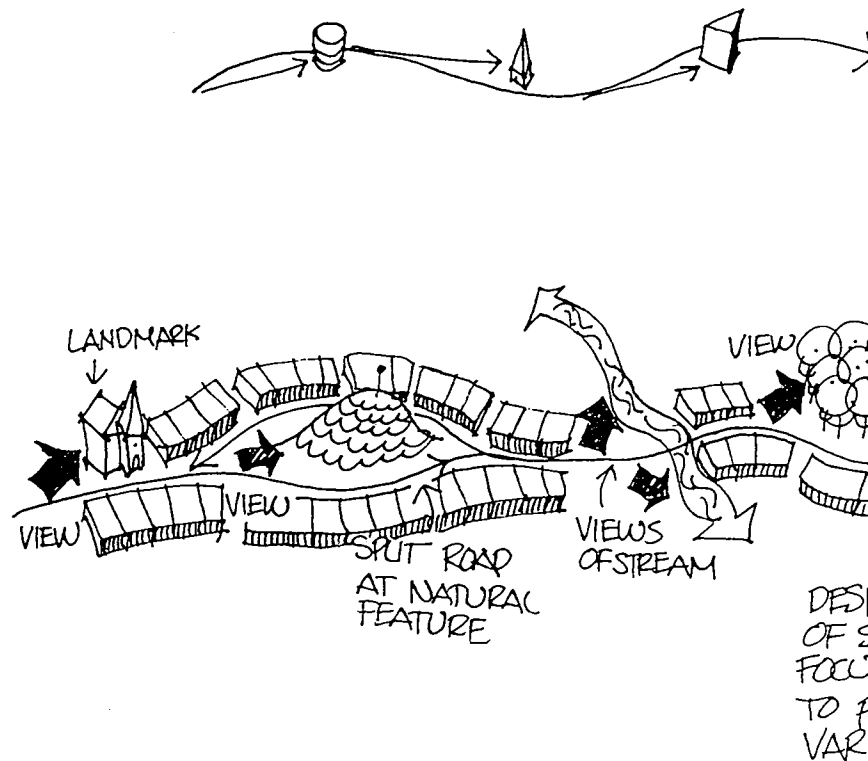 LANDMARK
VIEW
VIEW
VIEW
SPLIT ROAD
AT NATURAL
FEATURE
VIEWS
OF STREAM
OF
TO